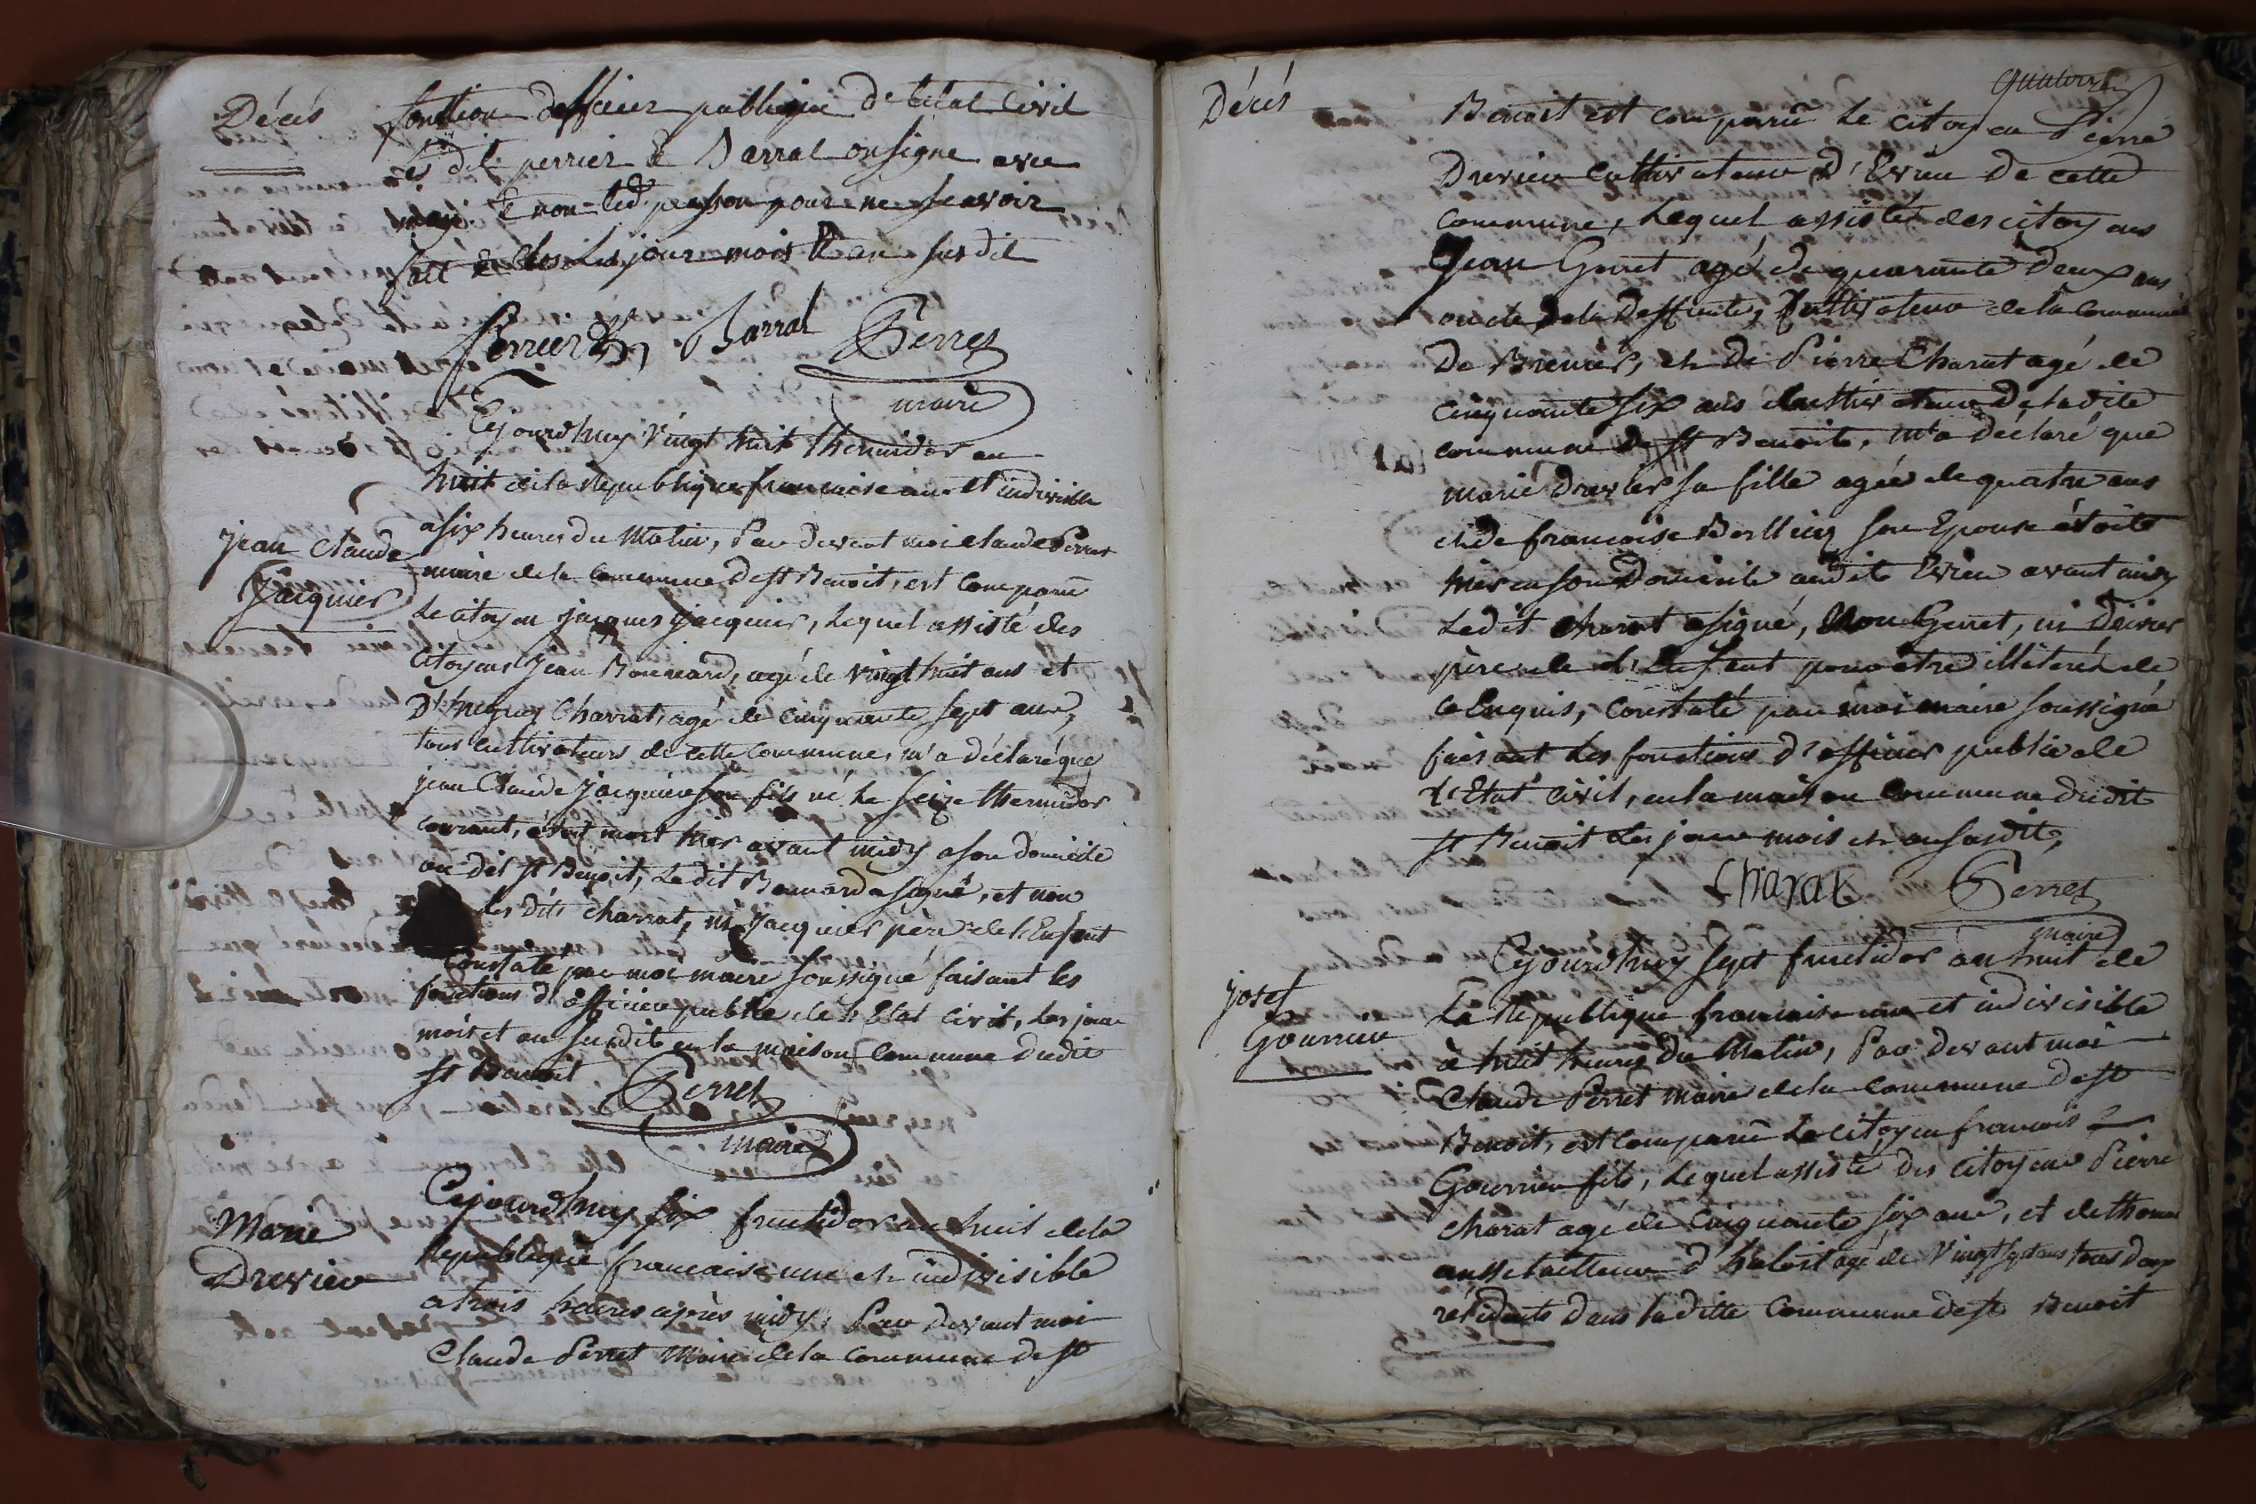 Décés
fonction dofficier publique de letat Civil
les dit perrier & Barral onsigné avec
moy & non led. pesson pour ne scavoir
fait & clos les jour mois & an susdit
Perrier Barral Perret
maire
Cejourdhuy vingt huit thermidor an
huit de la Republique francaise une et indivisible
a six heures du Matin, Par devant moi claude Perret
maire de la commune de St Benoit, est comparu
Le citoyen jacques jacquier, Lequel assisté des
Citoyens Jean Bonnard, agé de vingt huit ans et
D' Charrat, agé de cinquante sept ans,
tous cultivateurs de cette commune, m'a déclaré que
jean Claude jacquier son fils né Le seize thermidor
courant, étoit mort hier avant midy a son domicile
au dit St Benoit, Le dit Bonnard a signé, et non
les dits charrat, ni jacquier père de l'Enfant
Constaté par moi maire soussigné faisant les
fonctions d'officier public de l'Etat civil, Les jour
mois et an susdit en la maison Commune dudit
St Benoit
Perret
maire
jean Claude
Jacquier
Cejourdhuy six fructidor an huit de la
Republique francaise une et indivisible
a trois heures après midy, Par devant moi
Claude Perret Maire de la commune de St
Marie
Drevieu
Décés
Quatorze
Benoit est comparu Le citoyen Pierre
Drevieu cultivateur d'Evieu de cette
commune, Lequel assisté des citoyens
Jean Genet agé de quarante deux ans
oncle de la Deffunte, Cultivateur de la commune
De Brenier, et de Pierre Charat agé de
cinquante six ans cultivateur de la dite
commune de St Benoit, m'a déclaré que
marie Drevier sa fille agée de quatre ans
et de francoise son Epouse étoit
hier en son Domicile audit Evieu avant midy
Ledit charat a signé, Non Genet, ni Drivier
père de l'Enfant pour être illéteré de
ce Enquis, Constaté par moi maire soussigné
faisant Les fonctions d'officier public de
l'Etat civil, en la maison commune dudit
St Benoit Les jour mois et an susdit,
Charat Perret
maire
Cejourdhuy sept fructidor an huit de
La Republique francaise une et indivisible
à huit heures du Matin, Par devant moi
Claude Perret Maire de la commune de St
Benoit, est comparu Le citoyen francois
Gourrieu fils, Lequel assisté Des citoyens Pierre
charat agé de cinquante six ans, et de thomas
tailleur d'habit agé de vingt sept ans tous deux
résidents dans la ditte Commune de St Benoit
josef
Gourrieu